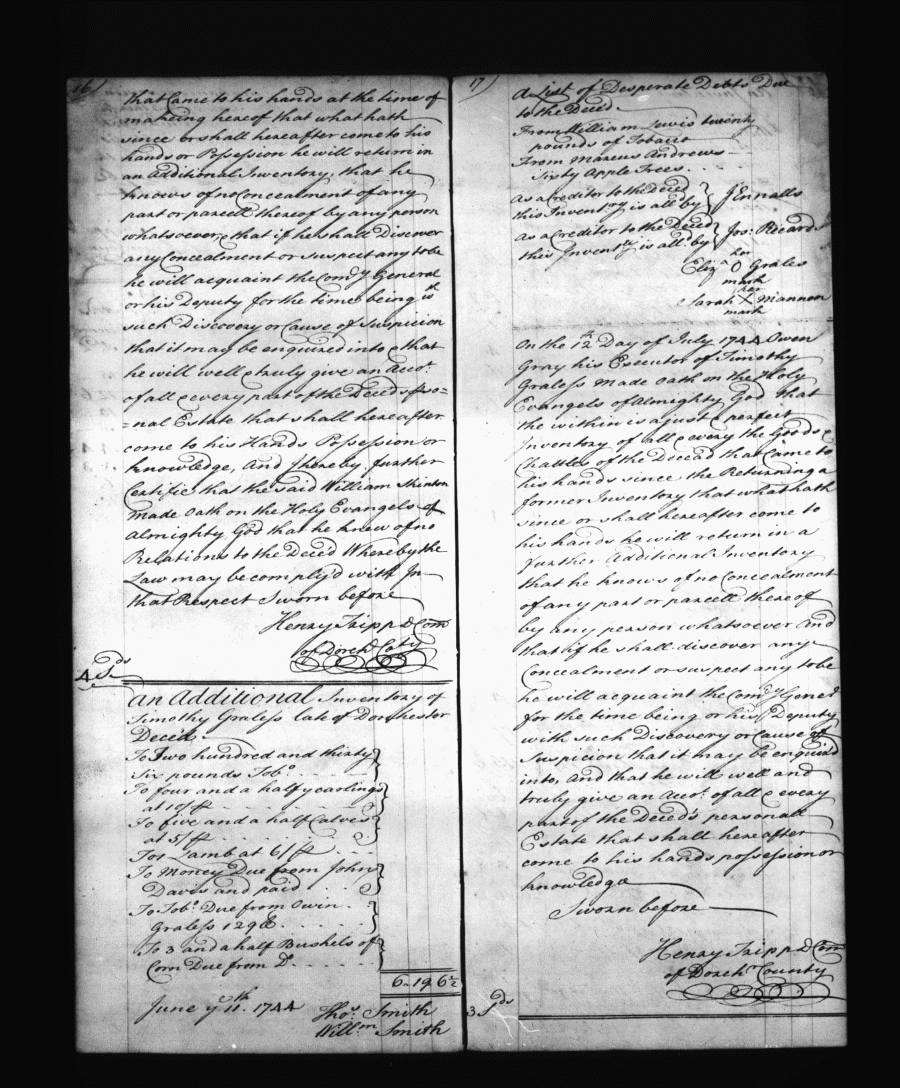 16/
that Came to his hands at the time of
making hereof that what hath
since or shall hereafter come to his
hands or Possession he will return in
an Additional Inventory, that he
knows of no Concealment of any
part or parcell thereof by any person
whatsoever & that if he shall Discover
any Concealment or suspect any to be
he will acquaint the Comry General
or his Deputy for the time being wth
such Discovery or Cause of Suspicion
that it may be enquired into & that
he will well & truly give an Accot.
of all & every part of the Deced's perso=
=nal Estate that shall hereafter
come to his Hands Possession or
knowledge, And I hereby further
Certifie that the said William Skinton
Made Oath on the Holy Evangels of
Almighty God that he knew of no
Relations to the Deced Whereby the
Law may be comply'd with In
that Respect Sworn before
Henry Tripp D Com
of Dorchr Coty
4 Sds
An Additional Inventory of
Timothy Graless late of Dorchester
Deced.
To Two hundred and thirty
Six pounds Tobo
To four and a half yearlings
at 10/ p
To five and a half Calves
at 5/ p
To 1 Lamb at 6/ p
To Money Due from John
Davis and paid
To Tobo Due from Owin
Graless 129 lb
To 3 and a half Bushels of
Corn Due from Do
6 „ 19 „ 6½
June ye 11th. 1744
Thos. Smith
Willm Smith
17/
A List of Desperate Debts Due
to the Deced
From William Lewis twenty
pounds of Tobaco
From Marcus Andrews
Sixty Apple Trees
As a creditor to the Deced
this Inventry is all. by
J Ennalls
As a Creditor to the Deced
this Inventry is all. by
Jos: Ricard
her
Elizh O Grales
mark
her
Sarah X Mannon
mark
On the 12th Day of July 1744 Owen
Gray his Executor of Timothy
Graless Made Oath on the Holy
Evangels of Almighty God that
the within is a just & perfect
Inventory of all & every the Goods &
Chattles of the Decead that Came to
his hands since the Returning a
former Inventory that what hath
since or shall hereafter come to
his hands he will return in a
further Additional Inventory
that he knows of no Concealment
of any part or parcell thereof
by any person whatsoever And
that if he shall discover any
Concealment or suspect any to be
he will acquaint the Comry Gened
for the time being or his Deputy
with such Discovery or Cause of
Suspicion that it may be enquired
into, And that he will well and
truly give an Accot. of all & every
part of the Deced's personall
Estate that shall hereafter
come to his hands possession or
knowledge
Sworn before
Henry Tripp D Com
of Dorchr County
3 Sds